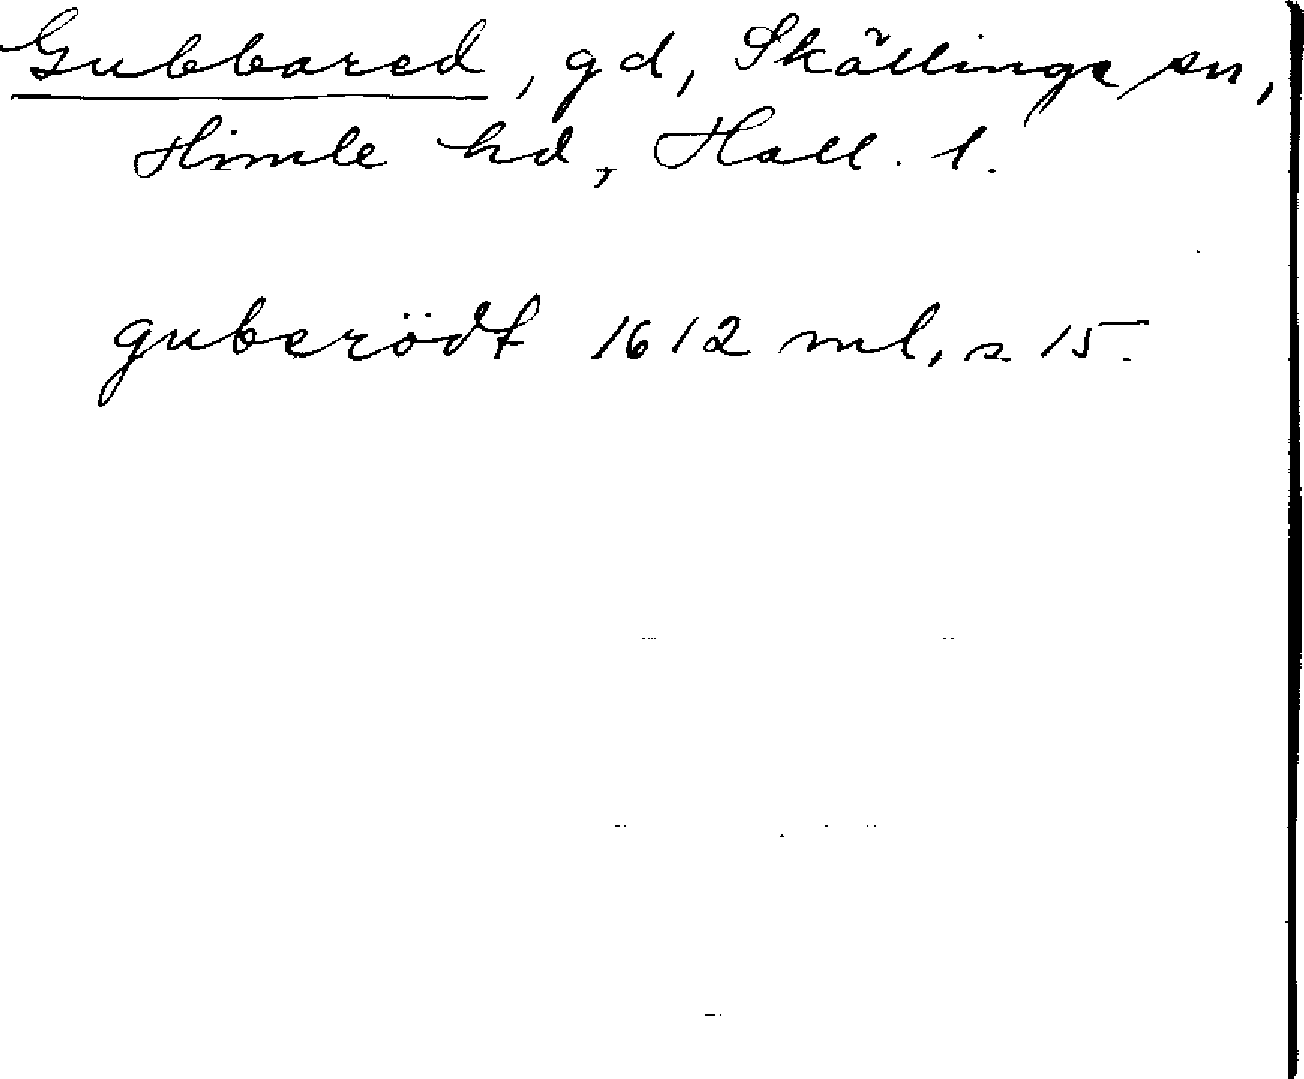 Gubbared, gd, Skällinge sn,
Himle hd, Hall. l.
guberödt 1612 ml, s 15.